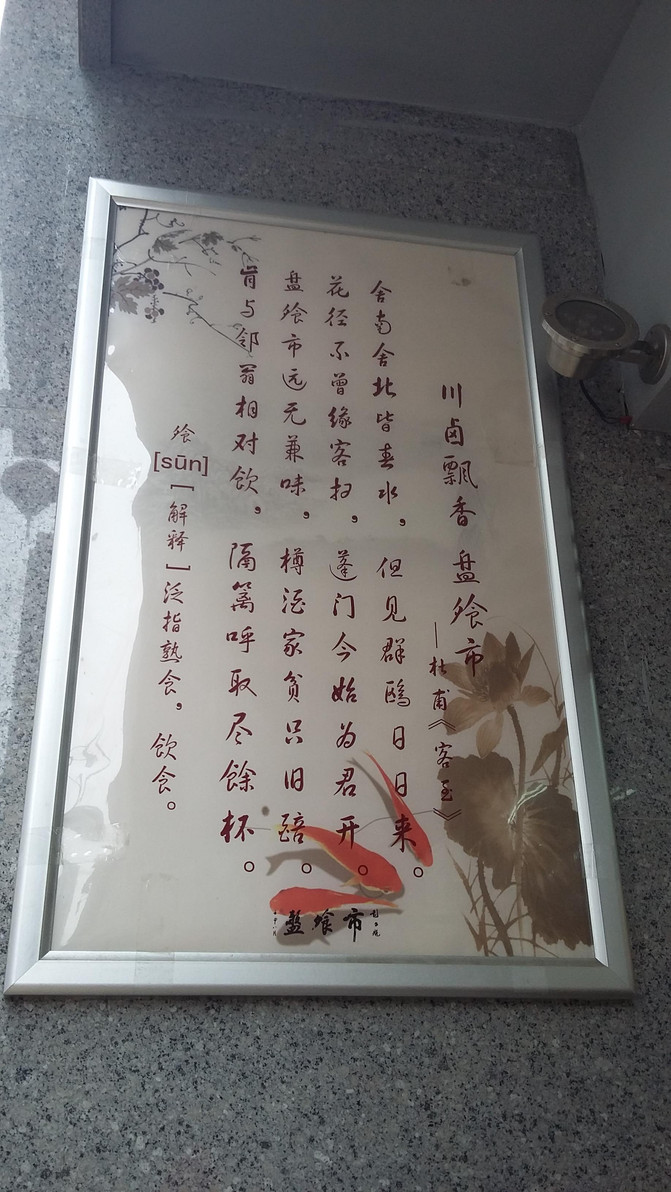 川卤飘香 盘飧市
——杜甫《客至》
舍南舍北皆春水，但见群鸥日日来。
花径不曾缘客扫，蓬门今始为君开。
盘飧市远无兼味，樽酒家贫只旧醅。
肯与邻翁相对饮，隔篱呼取尽馀杯。
飧
[sūn]
[解释]泛指熟食，饮食。
盤飧市